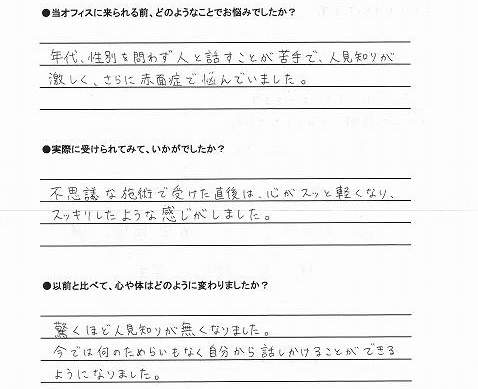 ●当オフィスに来られる前、どのようなことでお悩みでしたか？
年代、性別を問わず人と話すことが苦手で、人見知りが
激しく、さらに赤面症で悩んでいました。
●実際に受けられてみて、いかがでしたか？
不思議な施術で受けた直後は、心がスッと軽くなり、
スッキリしたような感じがしました。
●以前と比べて、心や体はどのように変わりましたか？
驚くほど人見知りが無くなりました。
今では何のためらいもなく自分から話しかけることができる
ようになりました。